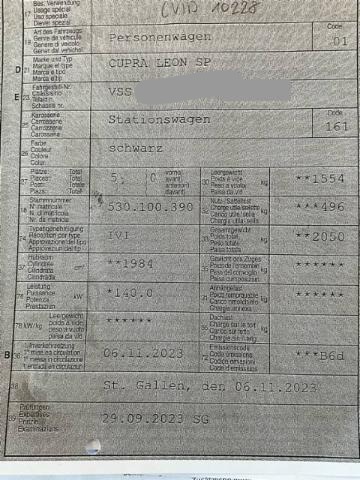 CVID 10228
Bes. Verwendung
Usage spécial
Uso speciale
Diever spezial
Art des Fahrzeugs
Genre de véhicule
Genere di veicolo
Gener dal vehichel
Personenwagen
Code
01
D
21
Marke und Typ
Marque et type
Marca e tipo
Marca e tip
CUPRA LEON SP
E
23
Fahrgestell-Nr.
Châssis no
Telaio n.
Schassis nr.
VSS
25
Karosserie
Carrosserie
Carrozzeria
Carossaria
Stationswagen
Code
161
26
Farbe
Couleur
Colore
Colur
schwarz
27
Plätze: Total
Places: Total
Posti: Totale
Plazs: Total
5, 0
vorne
avant
anteriori
davant
30
Leergewicht
Poids à vide
Peso a vuoto
Paisa da vid
kg
**1554
18
Stammnummer
N° matricule
N. di matricola
Nr. da matricla
*530.100.390
32
Nutz-/Sattellast
Charge utile/sellette
Carico utile/sella
Chargia utila
kg
***496
24
Typengenehmigung
Réception par type
Approvazione del tipo
Approvaziun dal tip
IVI
33
Gesamtgewicht
Poids total
Peso totale
Paisa totala
kg
**2050
37
Hubraum
Cylindrée
Cilindrata
Cilindrada
cm³
**1984
35
Gewicht des Zuges
Poids de l'ensemble
Peso del convoglio
Paisa cumposiziun
kg
******
76
Leistung
Puissance
Potenza
Prestaziun
kW
*140.0
31
Anhängelast
Poids remorquable
Carico rimorchiato
kg
******
78 kW/kg
Leergewicht
poids à vide
peso a vuoto
paisa da vid
******
55
Dachlast
Charge sur le toit
Carico sul tetto
Chargia sin il tetg
kg
******
B
36
1. Inverkehrsetzung
1ère mise en circulation
1. messa in circolazione
06.11.2023
72
Emissionscode
Code émissions
Codice emissioni
Code d'emissiuns
***B6d
38
St. Gallen, den 06.11.2023
39
Prüfungen
Expertises
Perizie
Examinaziuns
29.09.2023 SG